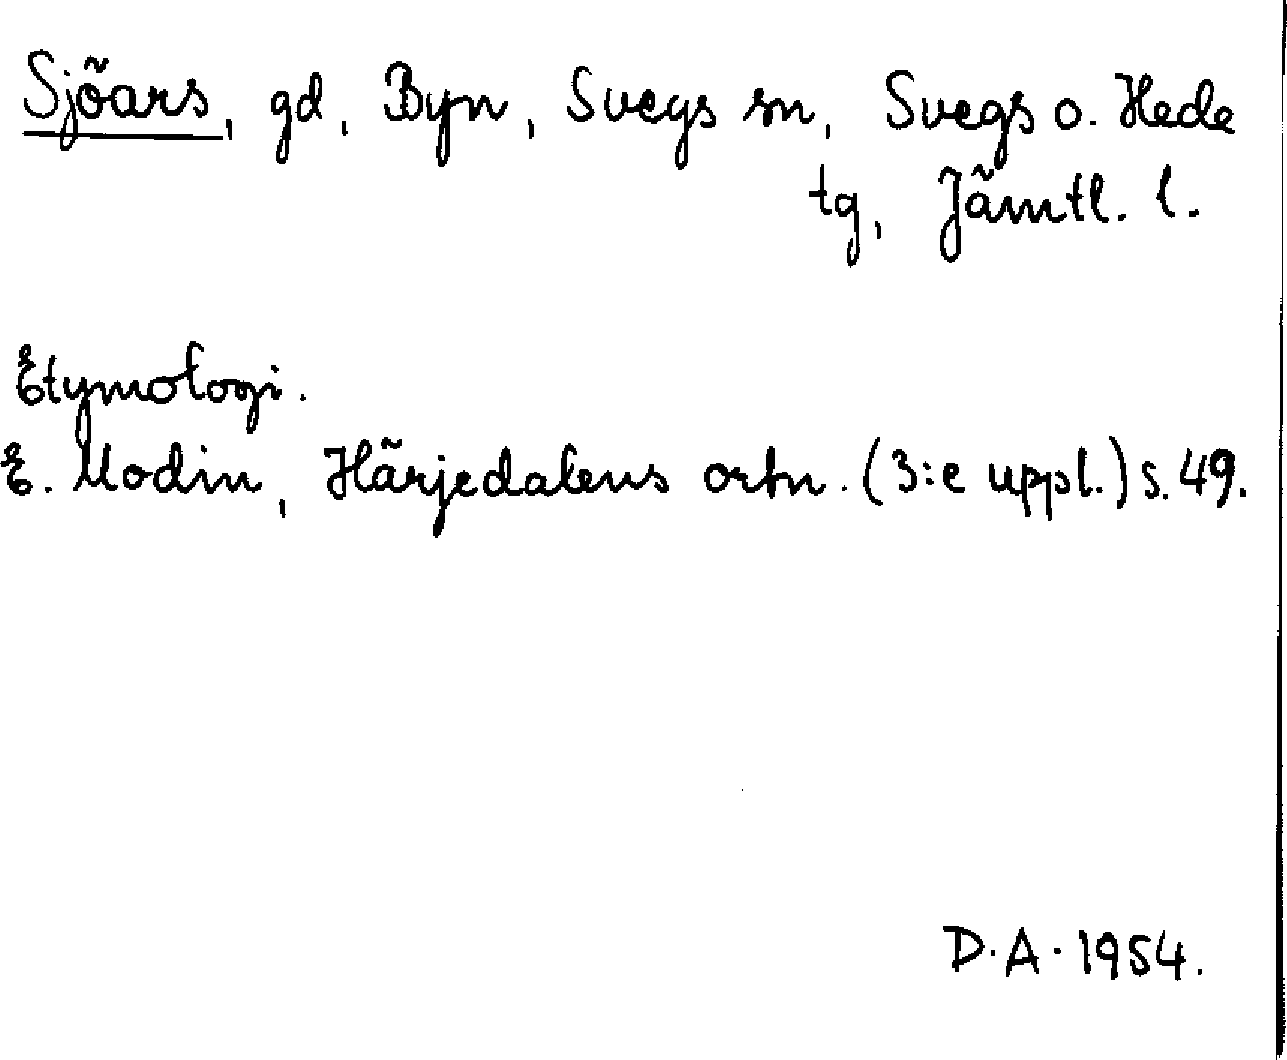 Sjöars, gd, Byn, Svegs sn, Svegs o. Hede
tg, Jämtl. l.
Etymologi.
E. Modin, Härjedalens ortn. (3:e uppl.) s. 49.
D.A. 1954.